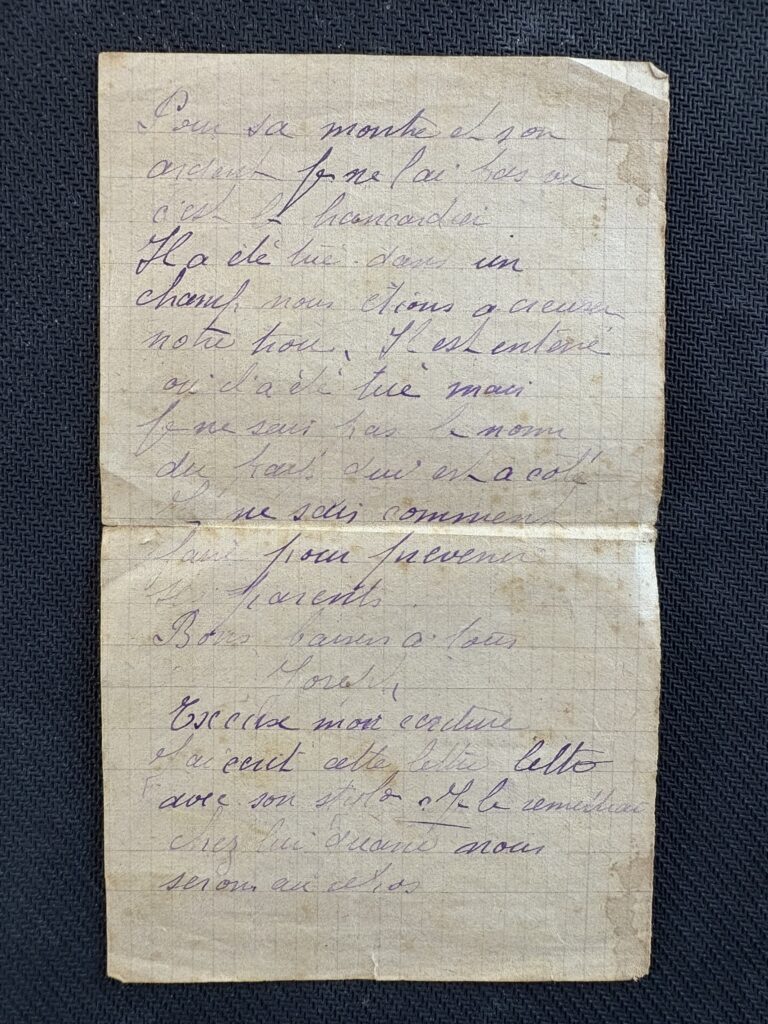 Pour sa montre et son
argent je ne l'ai pas vu
c'est le brancardier
Il a été tué dans un
champ, nous étions a creuser
notre trou. Il est enterré
ou il a été tué mais
je ne sais pas le nom
du pays qui est a côté
ne sais comment
faire pour prevenir
ses parents.
Bons baisers a tous
Joseph
Excuse mon ecriture
J'ai ecrit cette lettre lettre
avec son stylo. Je le remettrai
chez lui quand nous
serons au repos